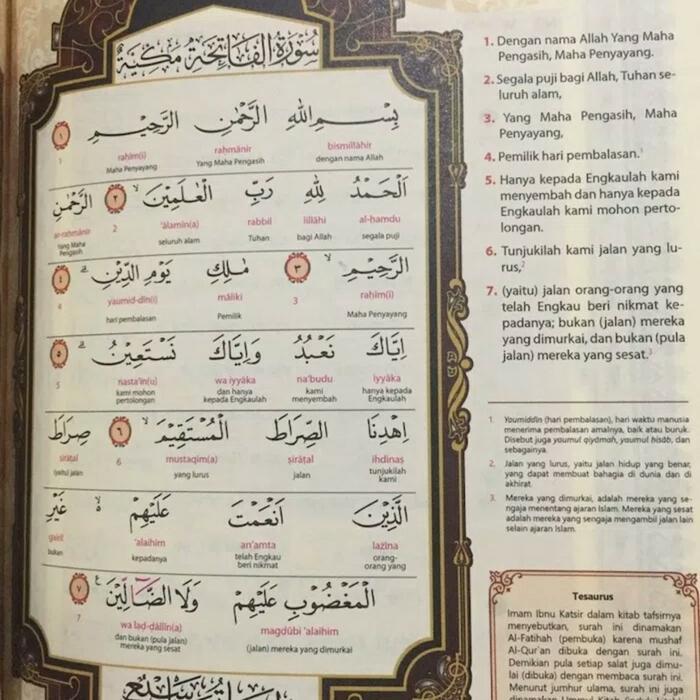 سُوْرَةُ الْفَاتِحَةِ مَكِّيَّةٌ
بِسْمِ اللهِ الرَّحْمٰنِ الرَّحِيْمِ ١
bismillāhir rahmānir rahīm(i) 1
dengan nama Allah Yang Maha Pengasih Maha Penyayang
اَلْحَمْدُ لِلّٰهِ رَبِّ الْعٰلَمِيْنَ ٢ الرَّحْمٰنِ
al-hamdu lillāhi rabbil 'ālamīn(a) 2 ar-rahmānir
segala puji bagi Allah Tuhan seluruh alam Yang Maha Pengasih
الرَّحِيْمِ ٣ مٰلِكِ يَوْمِ الدِّيْنِ ٤
rahīm(i) 3 māliki yaumid-dīn(i) 4
Maha Penyayang Pemilik hari pembalasan
اِيَّاكَ نَعْبُدُ وَاِيَّاكَ نَسْتَعِيْنُ ٥
iyyāka na'budu wa iyyāka nasta'īn(u) 5
hanya kepada Engkaulah kami menyembah dan hanya kepada Engkaulah kami mohon pertolongan
اِهْدِنَا الصِّرَاطَ الْمُسْتَقِيْمَ ٦ صِرَاطَ
ihdinaṣ ṣirāṭal mustaqīm(a) 6 ṣirāṭal
tunjukilah kami jalan yang lurus (yaitu) jalan
الَّذِيْنَ اَنْعَمْتَ عَلَيْهِمْ غَيْرِ
lażīna an'amta 'alaihim gairil
orang-orang yang telah Engkau beri nikmat kepadanya bukan
الْمَغْضُوْبِ عَلَيْهِمْ وَلَا الضَّاۤلِّيْنَ ٧
magḍūbi 'alaihim wa laḍ-ḍāllīn(a) 7
(jalan) mereka yang dimurkai dan bukan (pula jalan) mereka yang sesat
1. Dengan nama Allah Yang Maha
Pengasih, Maha Penyayang.
2. Segala puji bagi Allah, Tuhan se-
luruh alam,
3. Yang Maha Pengasih, Maha
Penyayang,
4. Pemilik hari pembalasan.1
5. Hanya kepada Engkaulah kami
menyembah dan hanya kepada
Engkaulah kami mohon perto-
longan.
6. Tunjukilah kami jalan yang lu-
rus,2
7. (yaitu) jalan orang-orang yang
telah Engkau beri nikmat ke-
padanya; bukan (jalan) mereka
yang dimurkai, dan bukan (pula
jalan) mereka yang sesat.3
1. Youmiddīn (hari pembalasan), hari waktu manusia
menerima pembalasan amalnya, baik atau buruk.
Disebut juga yaumul qiyāmah, yaumul hisāb, dan
sebagainya.
2. Jalan yang lurus, yaitu jalan hidup yang benar,
yang dapat membuat bahagia di dunia dan di
akhirat.
3. Mereka yang dimurkai, adalah mereka yang se-
ngaja menentang ajaran Islam. Mereka yang sesat
adalah mereka yang sengaja mengambil jalan lain
selain ajaran Islam.
Tesaurus
Imam Ibnu Katsir dalam kitab tafsirnya
menyebutkan, surah ini dinamakan
Al-Fatihah (pembuka) karena mushaf
Al-Qur'an dibuka dengan surah ini.
Demikian pula setiap salat juga dimu-
lai (dibuka) dengan membaca surah ini.
Menurut jumhur ulama, surah ini juga